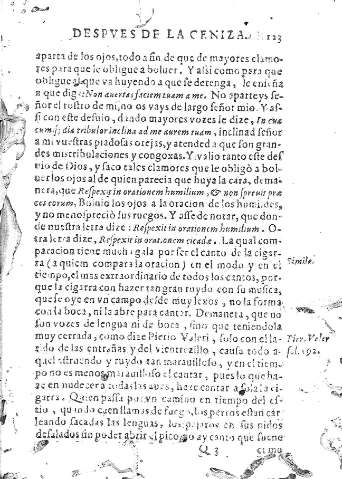 DESPVES DE LA CENIZA. 123
aparta de los ojos, todo a fin de que de mayores clamo-
res para que le obligue a boluer. Y assi como para que
obligue al que va huyendo a que se detenga, le enseña
a que diga: Non auertas faciem tuam a me. No aparteys se-
ñor el rostro de mi, no os vays de largo señor mio. Y as-
si con este desuio, dando mayores vozes le dize, In qua
cumq; die tribulor inclina ad me aurem tuam, inclinad señor
a mi vuestras piadosas orejas, y atended a que son gran-
des mis tribulaciones y congoxas. Y valio tanto este des
uio de Dios, y saco tales clamores que le obligò a bol-
uer los ojos al de quien parecia que huya la cara, de ma-
nera, que Respexit in orationem humilium, & non spreuit præ
ces eorum. Boluio los ojos a la oracion de los humildes,
y no menospreciò sus ruegos. Y assede notar, que don-
de nuestra letra dize: Respexit in orationem humilium. O-
tra letra dize, Respexit in orationem cicadæ. La qual com-
paracion tiene mucha gala por ser el canto de la cigar-
ra (a quien compara la oracion) en el modo y en el
Simile.
tiempo, el mas extraordinario de todos los cantos, por-
que la cigarra con hazer tan gran ruydo con su musica,
que se oye en vn campo desde muy lexos, no la forma
con la boca, ni la abre para cantar. De manera, que no
son vozes de lengua ni de boca, sino que teniendola
muy cerrada, como dize Pierio Valeri, solo con el la-
Pier. Valer
tido de las entrañas y del vientrezillo, causa todo a-
fol. 192.
quel estruendo y ruydo tan marauilloso, y en el tiem-
po no es menos marauilloso el cantar, pues lo que ha-
ze enmudecer a todas las aues, haze cantar a sola la ci-
garra. Quien passa por vn camino en tiempo del es-
tio, quando caen llamas de fuego, los perros estan car-
leando sacadas las lenguas, los paxaros en sus nidos
desalados sin poder abrir el pico, no ay canto que suene
Q 3